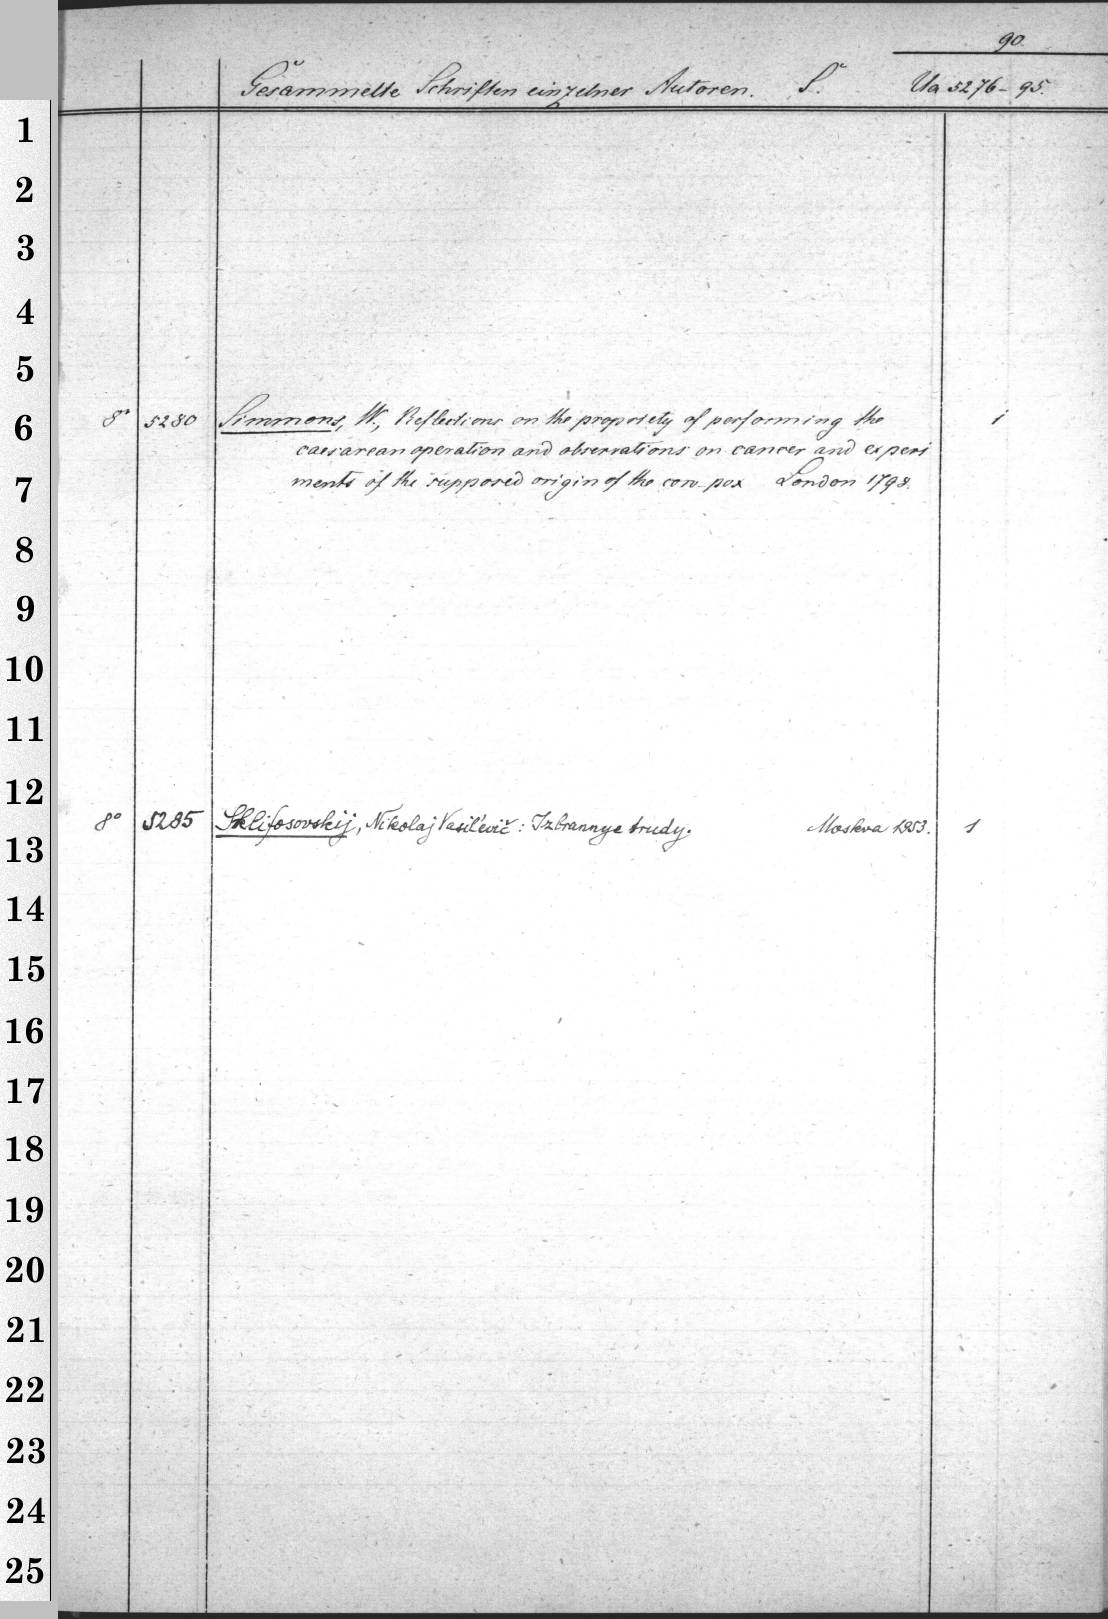 90.
Gesammelte Schriften einzelner Autoren. S. Ua 5276-95.
1
2
3
4
5
8° 5280 Simmons, W., Reflections on the propriety of performing the 1
6
caesarean operation and observations on cancer and experi
7
ments of the supposed origin of the cow-pox London 1798.
8
9
10
11
12
8° 5285 Sklifosovskij, Nikolaj Vasil'evič: Izbrannye trudy. Moskva 1953. 1
13
14
15
16
17
18
19
20
21
22
23
24
25